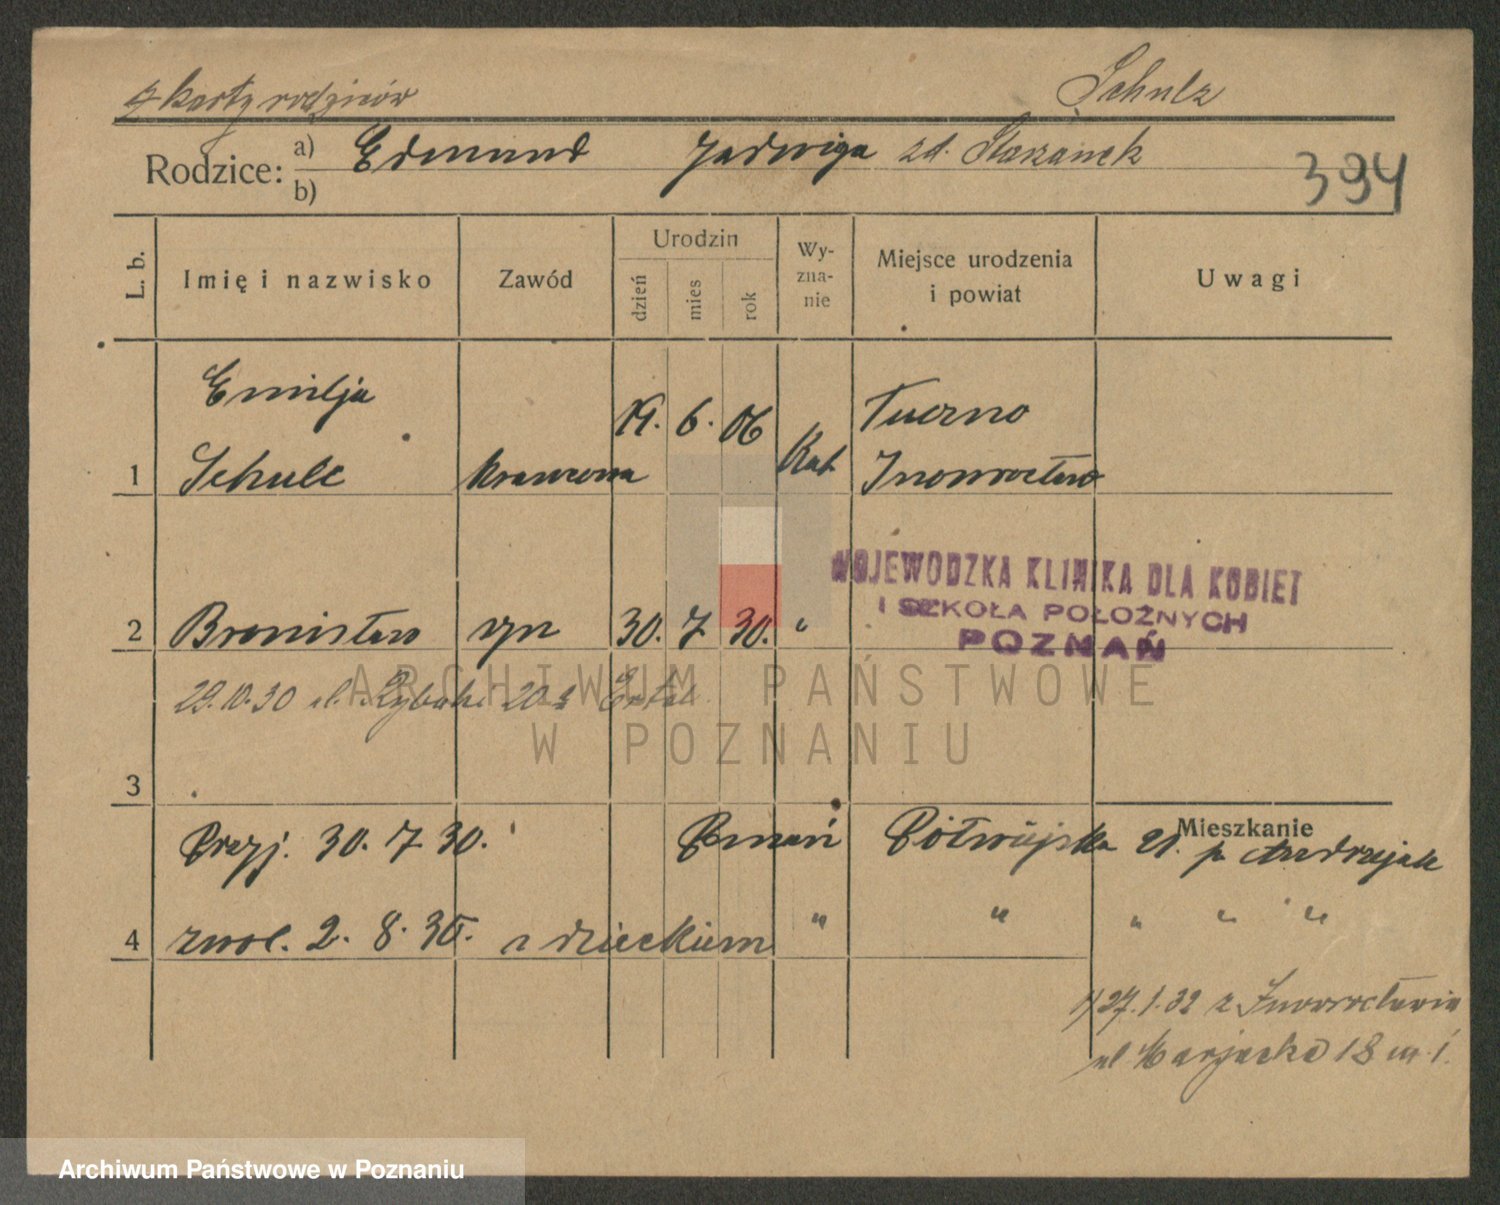 z karty rodziców Schulz
Rodzice: a) Edmund Jadwiga zd.
b)
394
L. b. Imię i nazwisko Zawód Urodzin dzień mies rok Wy-zna-nie Miejsce urodzenia i powiat Uwagi
Emilja 19. 6. 06 Tuczno
1 Schulc krawcowa Kat Inowrocław
WOJEWODZKA KLINIKA DLA KOBIET
I SZKOŁA POŁOŻNYCH
POZNAŃ
2 Bronisław syn 30. 7. 30. "
29.10.30 ul. Rybaki 20a
ARCHIWUM PAŃSTWOWE
W POZNANIU
3
Mieszkanie
Przyj. 30. 7. 30. Poznań Półwiejska 21. p. Andrzejak
4 zwol. 2. 8. 30. z dzieckiem " " " " "
27.1.32 z Inowrocławia
ul. 18 m 1.
Archiwum Państwowe w Poznaniu